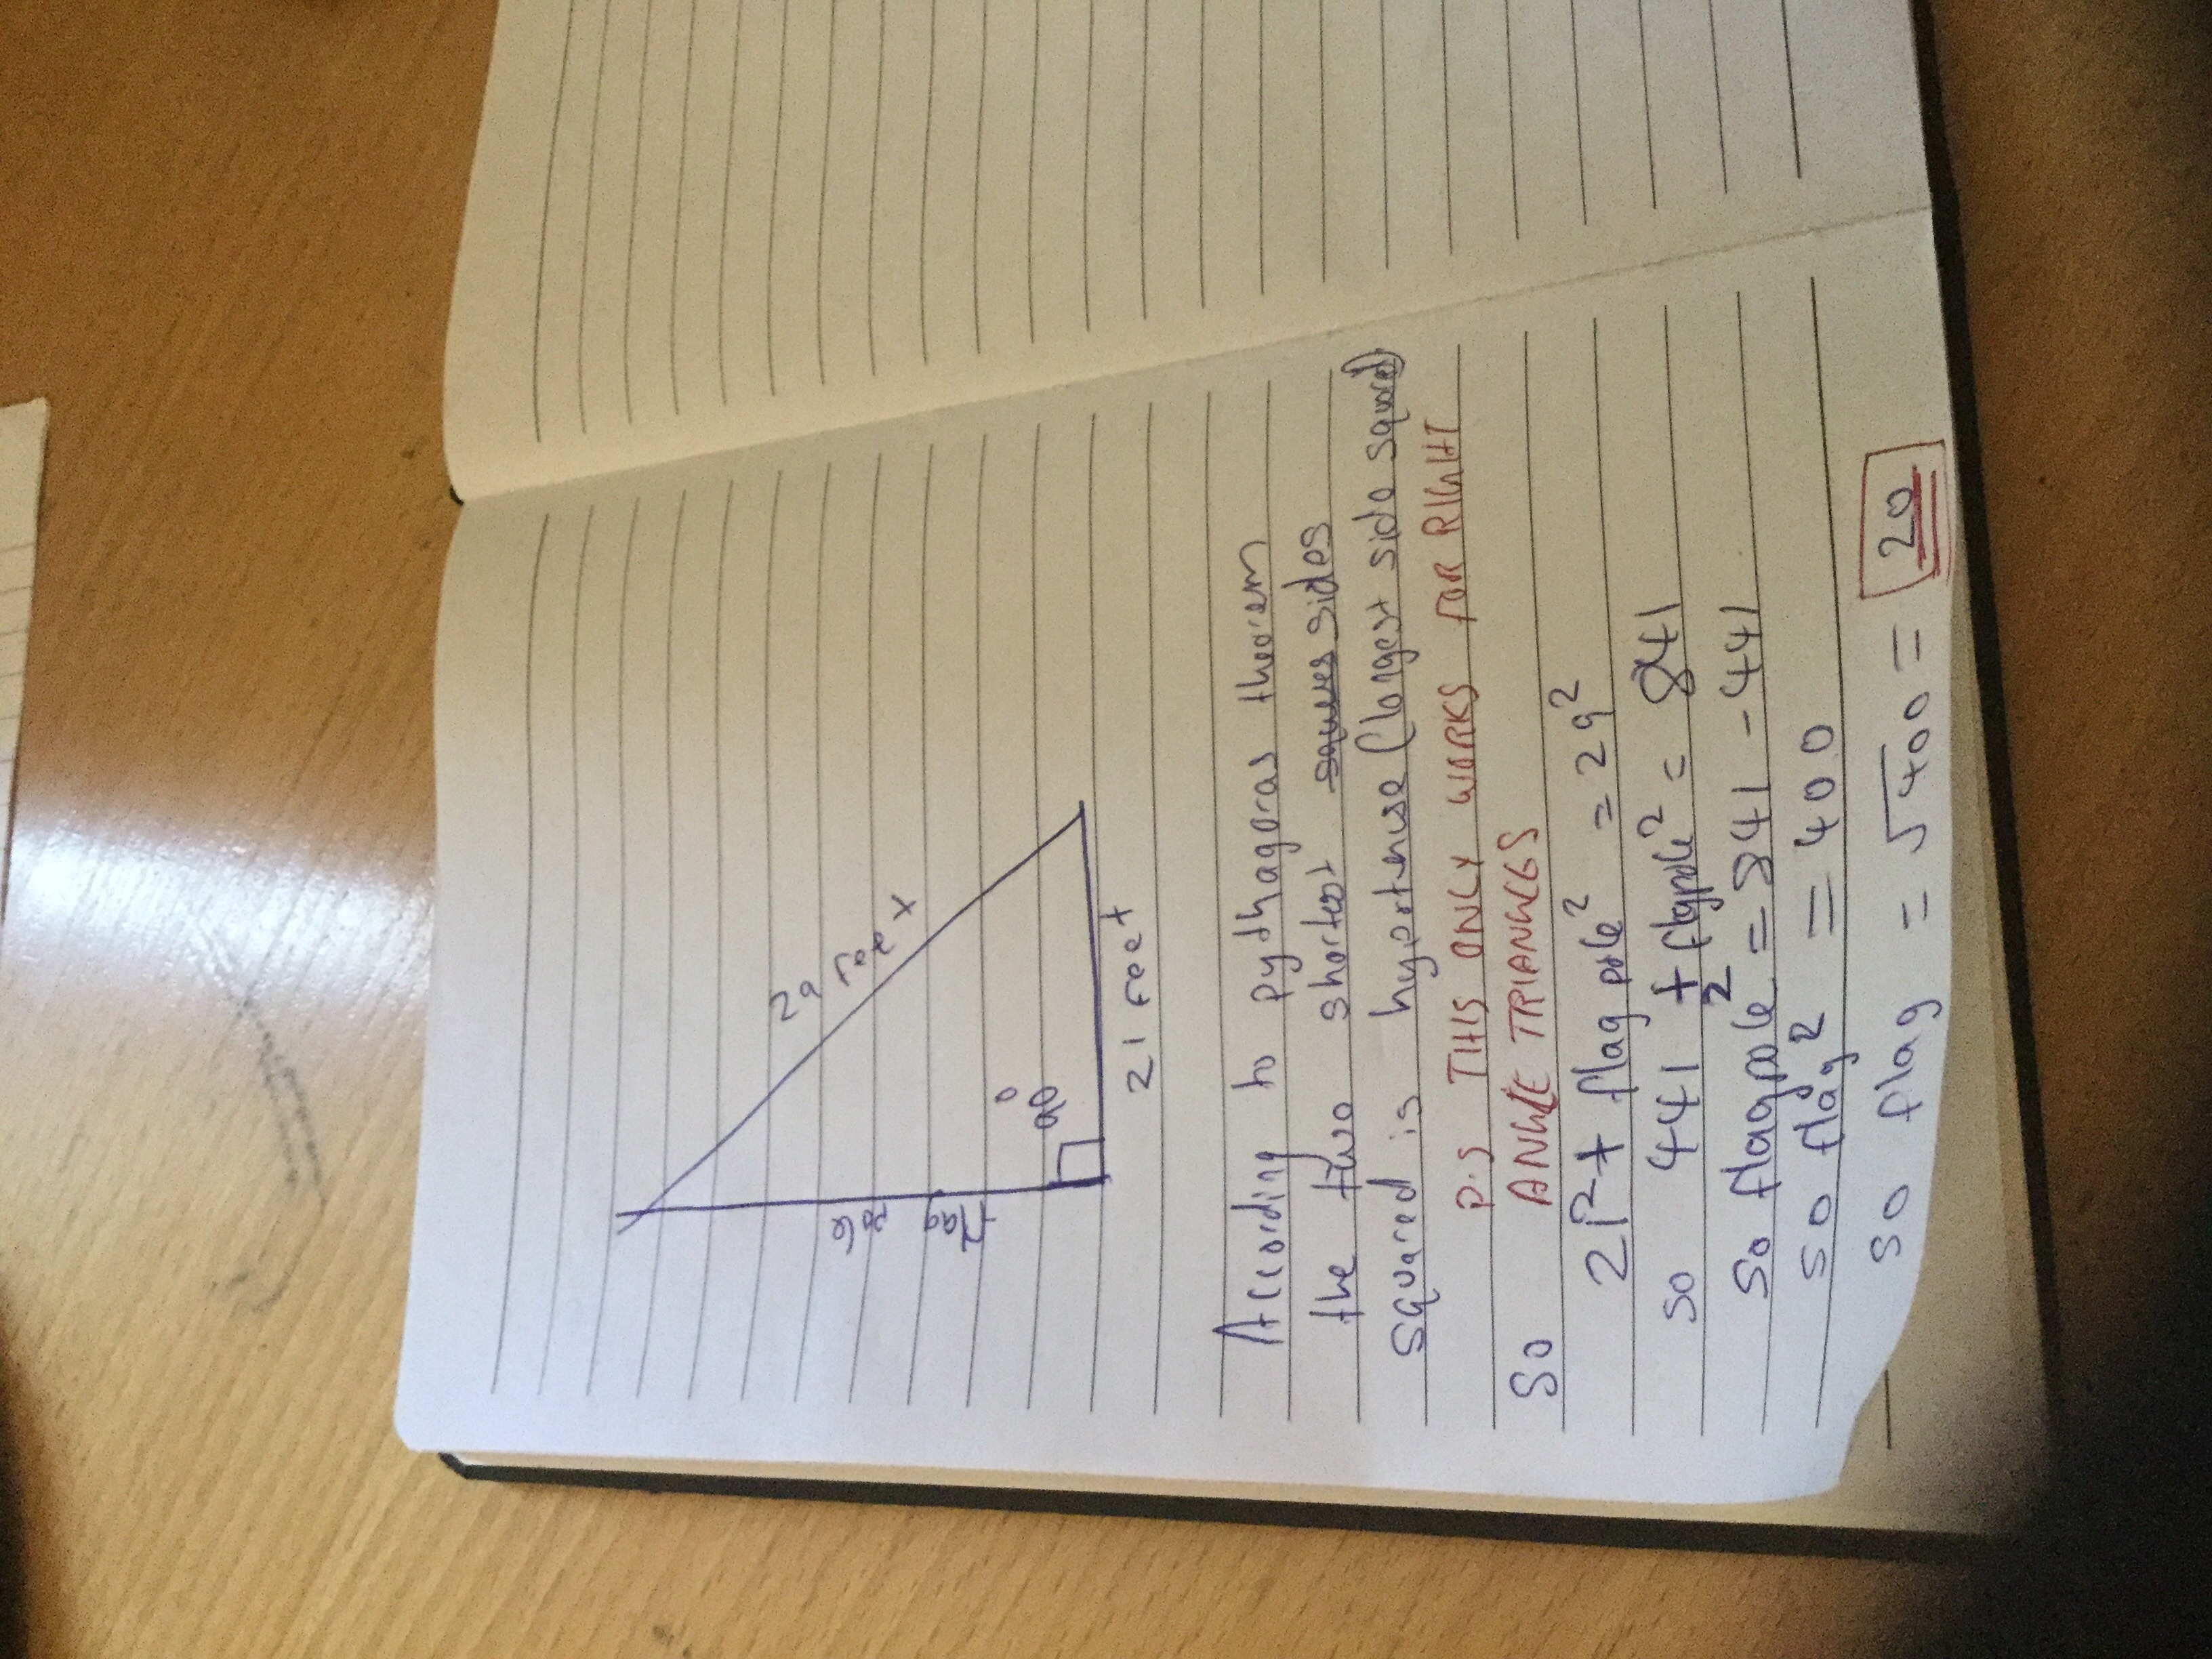 29 feet
flag
pole
90°
21 feet
According to pythagoras theorem
the two shortest squares sides
squared is hyportenuse (longest side squared)
P.S THIS ONLY WORKS FOR RIGHT
ANGLE TRIANGLES
So
21² + flag pole² = 29²
so 441 + flagpole² = 841
So flagpole² = 841 - 441
so flag² = 400
so flag = √400 = 20